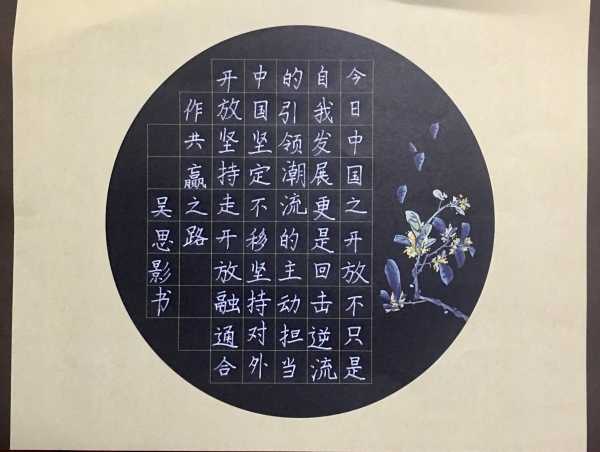 今日中国之开放不只是
自我发展更是回击逆流
的引领潮流的主动担当
中国坚定不移坚持对外
开放坚持走开放融通合
作共赢之路
吴思影书